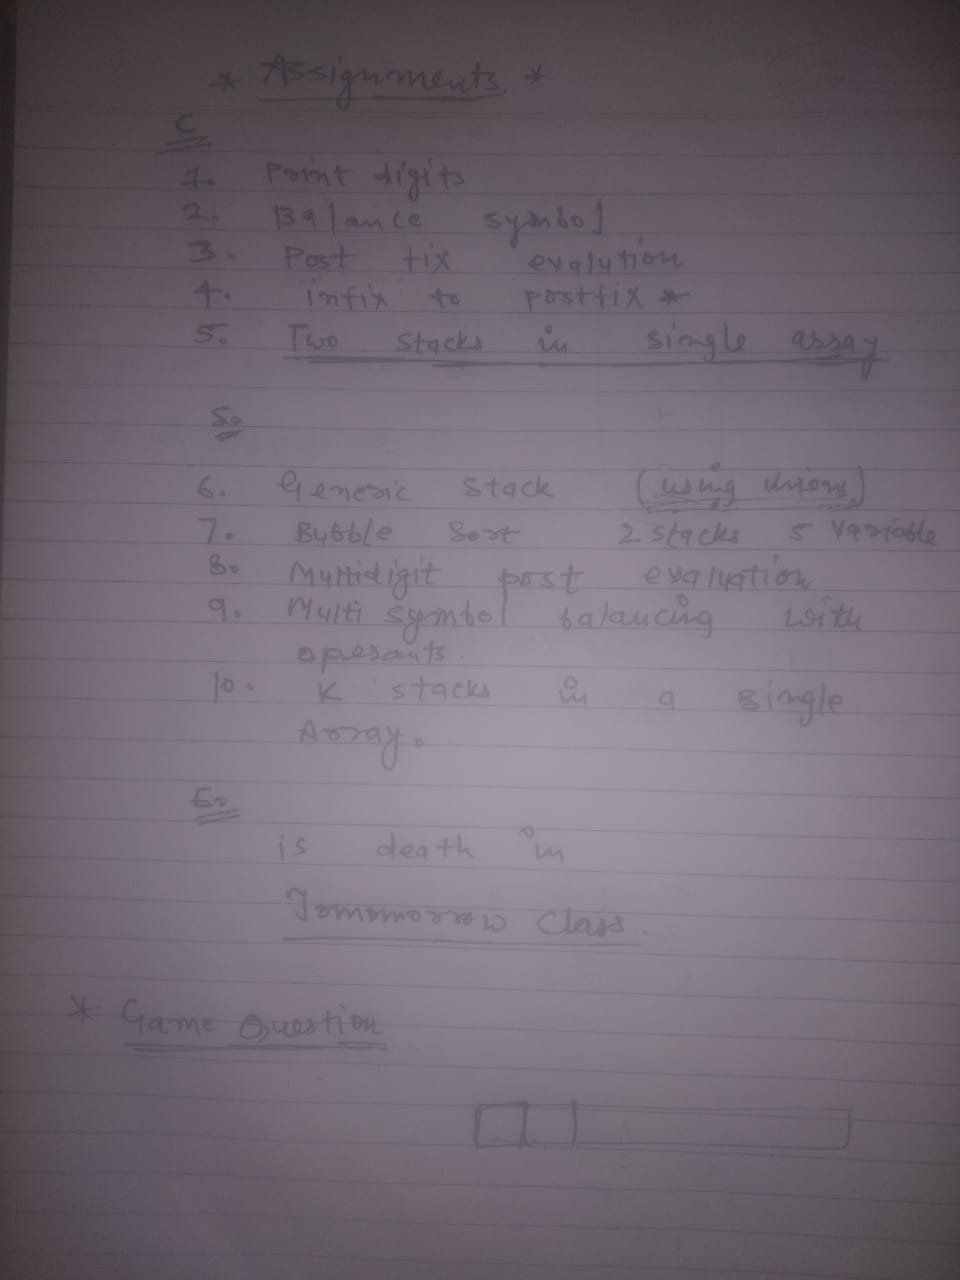 * Assignments *
C
1. Print digits
2. Balance symbol
3. Post fix evalution
4. infix to postfix *
5. Two stacks in single array
S.
6. Generic stack (using unions)
7. Bubble Sort 2 stacks 5 variable
8. Multidigit post evaluation
9. Multi symbol balancing with
operants.
10. K stacks in a single
Array.
E.
is death in
Tomomorrow Class.
* Game Question